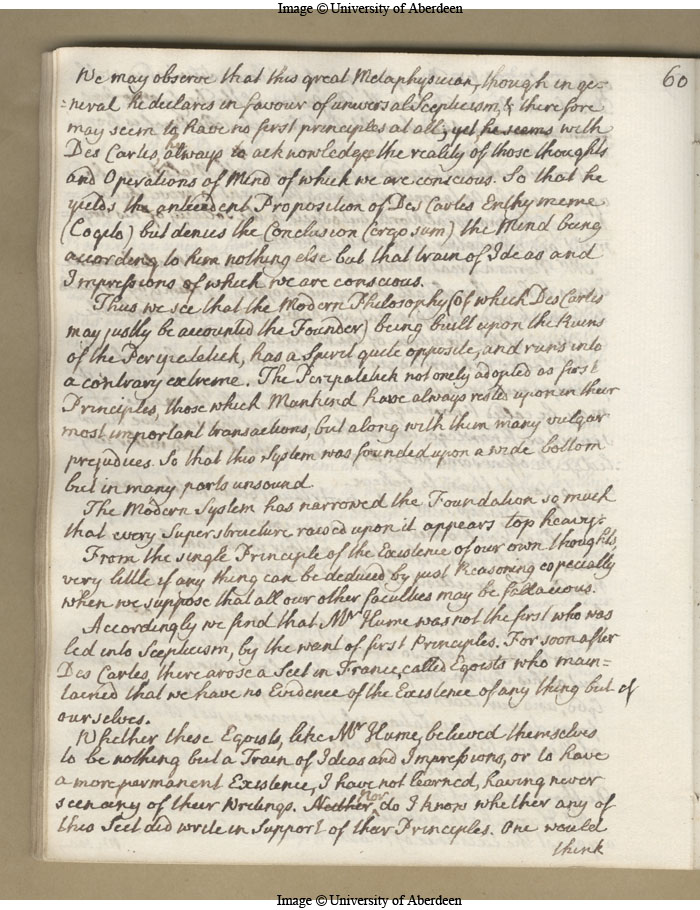 Image © University of Aberdeen
60
We may observe that this great Metaphysician, though in ge=
=neral he declares in favour of universal Scepticism, & therefore
may seem to have no first principles at all, yet he seems with
Des Cartes, he always to acknowledges the reality of those thoughts
and Operations of Mind of which we are conscious. So that he
yields the antecedent Proposition of Des Cartes Enthymeme
(Cogito) but denies the Conclusion (ergo sum) the Mind being
according to him nothing else but that train of Ideas and
Impressions of which we are conscious.
Thus we see that the Modern Philosophy (of which Des Cartes
may justly be accounted the Founder) being built upon the Ruins
of the Peripatetick, has a Spirit quite opposite, and runs into
a contrary extreme. The Peripatetick not onely adopted as first
Principles, those which Mankind have always rested upon in their
most important transactions, but along with them many vulgar
prejudices. So that this System was founded upon a wide bottom
but in many parts unsound
The Modern System has narrowed the Foundation so much
that every Superstructure raised upon it appears top heavy.
From the single Principle of the Existence of our own thoughts,
very little if any thing can be deduced by just Reasoning especially
when we suppose that all our other faculties may be fallacious.
Accordingly we find that Mr Hume was not the first who was
led into Scepticism, by the want of first Principles. For soon after
Des Cartes, there arose a Sect in France, called Egoists who main=
tained that we have no Evidence of the Existence of any thing but of
ourselves.
Whether these Egoists, like Mr Hume, believed themselves
to be nothing but a Train of Ideas and Impressions, or to have
a more permanent Existence, I have not learned, having never
seen any of their Writings. Neither Nor do I know whether any of
this Sect did write in Support of their Principles. One would
think
Image © University of Aberdeen